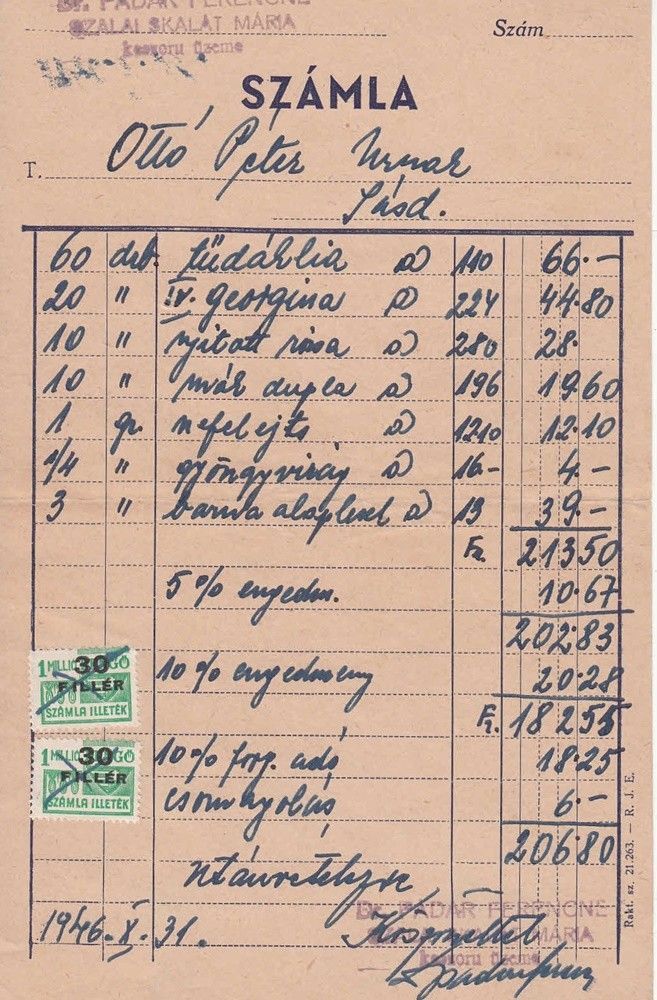 Dr. PADAR FERENCNE
SZALAI SKALAT MÁRIA
koszoru üzeme
Szám
SZÁMLA
T. Ottó Péter Urnak
Sásd.
60 drb. tűdáhlia a 110 66.-
20 " IV. georgina a 224 44.80
10 " nyitott rózsa a 280 28.
10 " mák dupla a 196 19.60
1 gr. nefelejts a 1210 12.10
1/4 " gyöngyvirág a 16- 4.-
3 " barna a 13 39.-
Ft. 213.50
5% engedm. 10.67
202.83
10% engedmény 20.28
Ft. 182.55
10% forg. adó 18.25
csomagolás 6.-
206.80
1 MILLIÓ PENGŐ
30
FILLÉR
SZÁMLA ILLETÉK
1 MILLIÓ PENGŐ
30
FILLÉR
SZÁMLA ILLETÉK
utánvételezve
1946. X. 31.
Dr. PADAR FERENCNE
SZALAI SKALAT MÁRIA
koszoru üzeme
Rakt. sz. 21.263. — R. J. E.